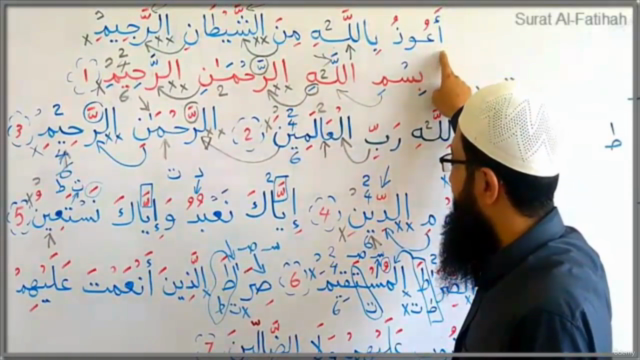 Surat Al-Fatihah
أَعُوذُ بِاللَّهِ مِنَ الشَّيْطَانِ الرَّجِيمِ
بِسْمِ اللَّهِ الرَّحْمَٰنِ الرَّحِيمِ (1)
للَّهِ رَبِّ الْعَالَمِينَ (2) الرَّحْمَٰنِ الرَّحِيمِ (3)
مِ الدِّينِ (4) إِيَّاكَ نَعْبُدُ وَإِيَّاكَ نَسْتَعِينُ (5)
الصِّرَاطَ الْمُسْتَقِيمَ (6) صِرَاطَ الَّذِينَ أَنْعَمْتَ عَلَيْهِمْ
عَلَيْهِمْ وَلَا الضَّالِّينَ 7
ط